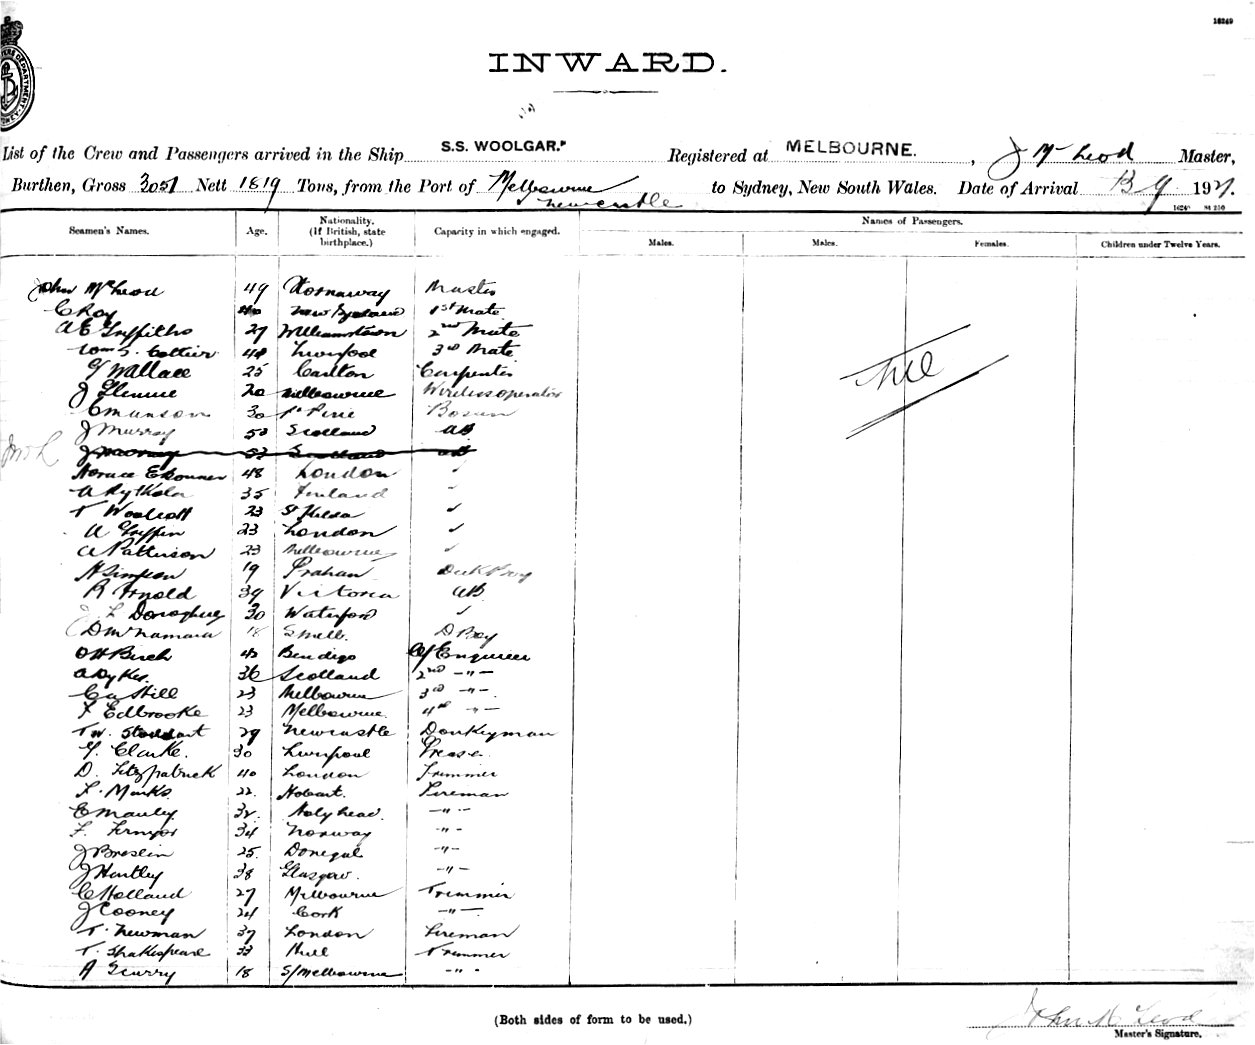 16249
INWARD.
List of the Crew and Passengers arrived in the Ship S.S. WOOLGAR. Registered at MELBOURNE. , J McLeod Master,
Burthen, Gross 3051 Nett 1819 Tons, from the Port of Melbourne Newcastle to Sydney, New South Wales. Date of Arrival 192
Seamen's Names. Age. Nationality. (If British, state birthplace.) Capacity in which engaged. Names of Passengers.
Males. Males. Females. Children under Twelve Years.
John McLeod 49 Stornaway Master
C Roy New Zealand 1st Mate
A E Griffiths 27 Williamstown 2nd Mate
Wm S. Collier 48 Liverpool 3rd Mate
G Wallace 25 Carlton Carpenter
J Glennie 20 Melbourne Wireless operator
C Munson 30 Pt Pirie Bosun
J Murray 53 Scotland AB
J Murray 53 Scotland AB
Horace E 48 London
A 35 Finland
T Woolcott 23 St Kilda
A Griffin 23 London
A Pattinson 23 Melbourne
H Simpson 19 Prahan Deck Boy
R Arnold 39 Victoria AB
L Donoghue 30 Waterford
D McNamara 18 S Melb. D Boy
O H Birch 42 Bendigo Engineer
A Dykes. 36 Scotland 2nd -"-
C A Hill 23 Melbourne 3rd -"-
F Edbrooke 23 Melbourne 4th -"-
T W. Stoddart 29 Newcastle Donkeyman
G. Clarke. 30 Liverpool Greaser
D. Fitzpatrick 40 London Trimmer
L. Marks 22. Hobart. Fireman
E Manley 32. Holyhead. -"-
F. 34 Norway -"-
J Breslin 25. Donegal -"-
J Hartley 38 Glasgow. -"-
C Holland 27 Melbourne Trimmer
J Cooney 24 Cork -"-
T. Newman 37 London Fireman
T. Shakespeare 33 Hull Trimmer
A Scurry 18 S/Melbourne -"-
Nil
(Both sides of form to be used.)
John McLeod
Master's Signature.